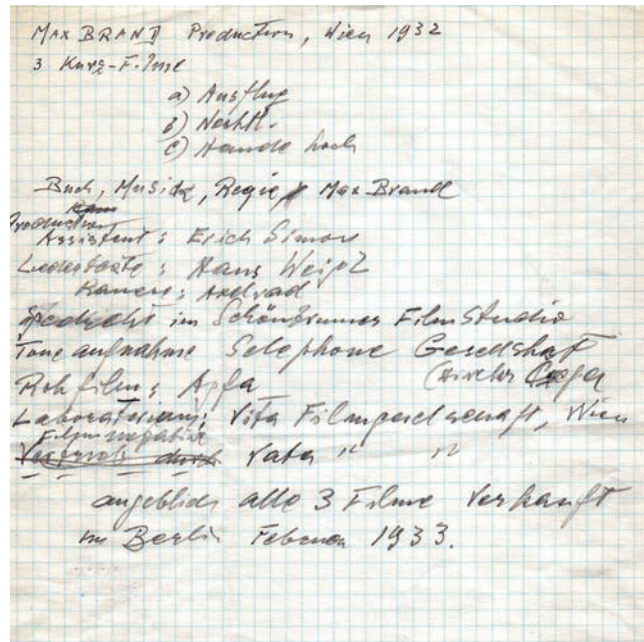 MAX BRAND Production, Wien 1932
3 Kurz-Filme
a) Ausflug
b) Nachtl.
c) Haende hoch
Buch, Musik, Regie Max Brand
Production
Assistent: Erich Simon
Liedertexte: Hans Weigel
Kamera:
im Schönbrunner Film Studio
Tone aufnahme Selophone Gesellshaft
Rohfilm: Agfa (Director
Laboratorium: Vita Filmgesellschaft, Wien
Filmnegative
Vata " "
angeblich alle 3 Filme verkauft
in Berlin Februar 1933.